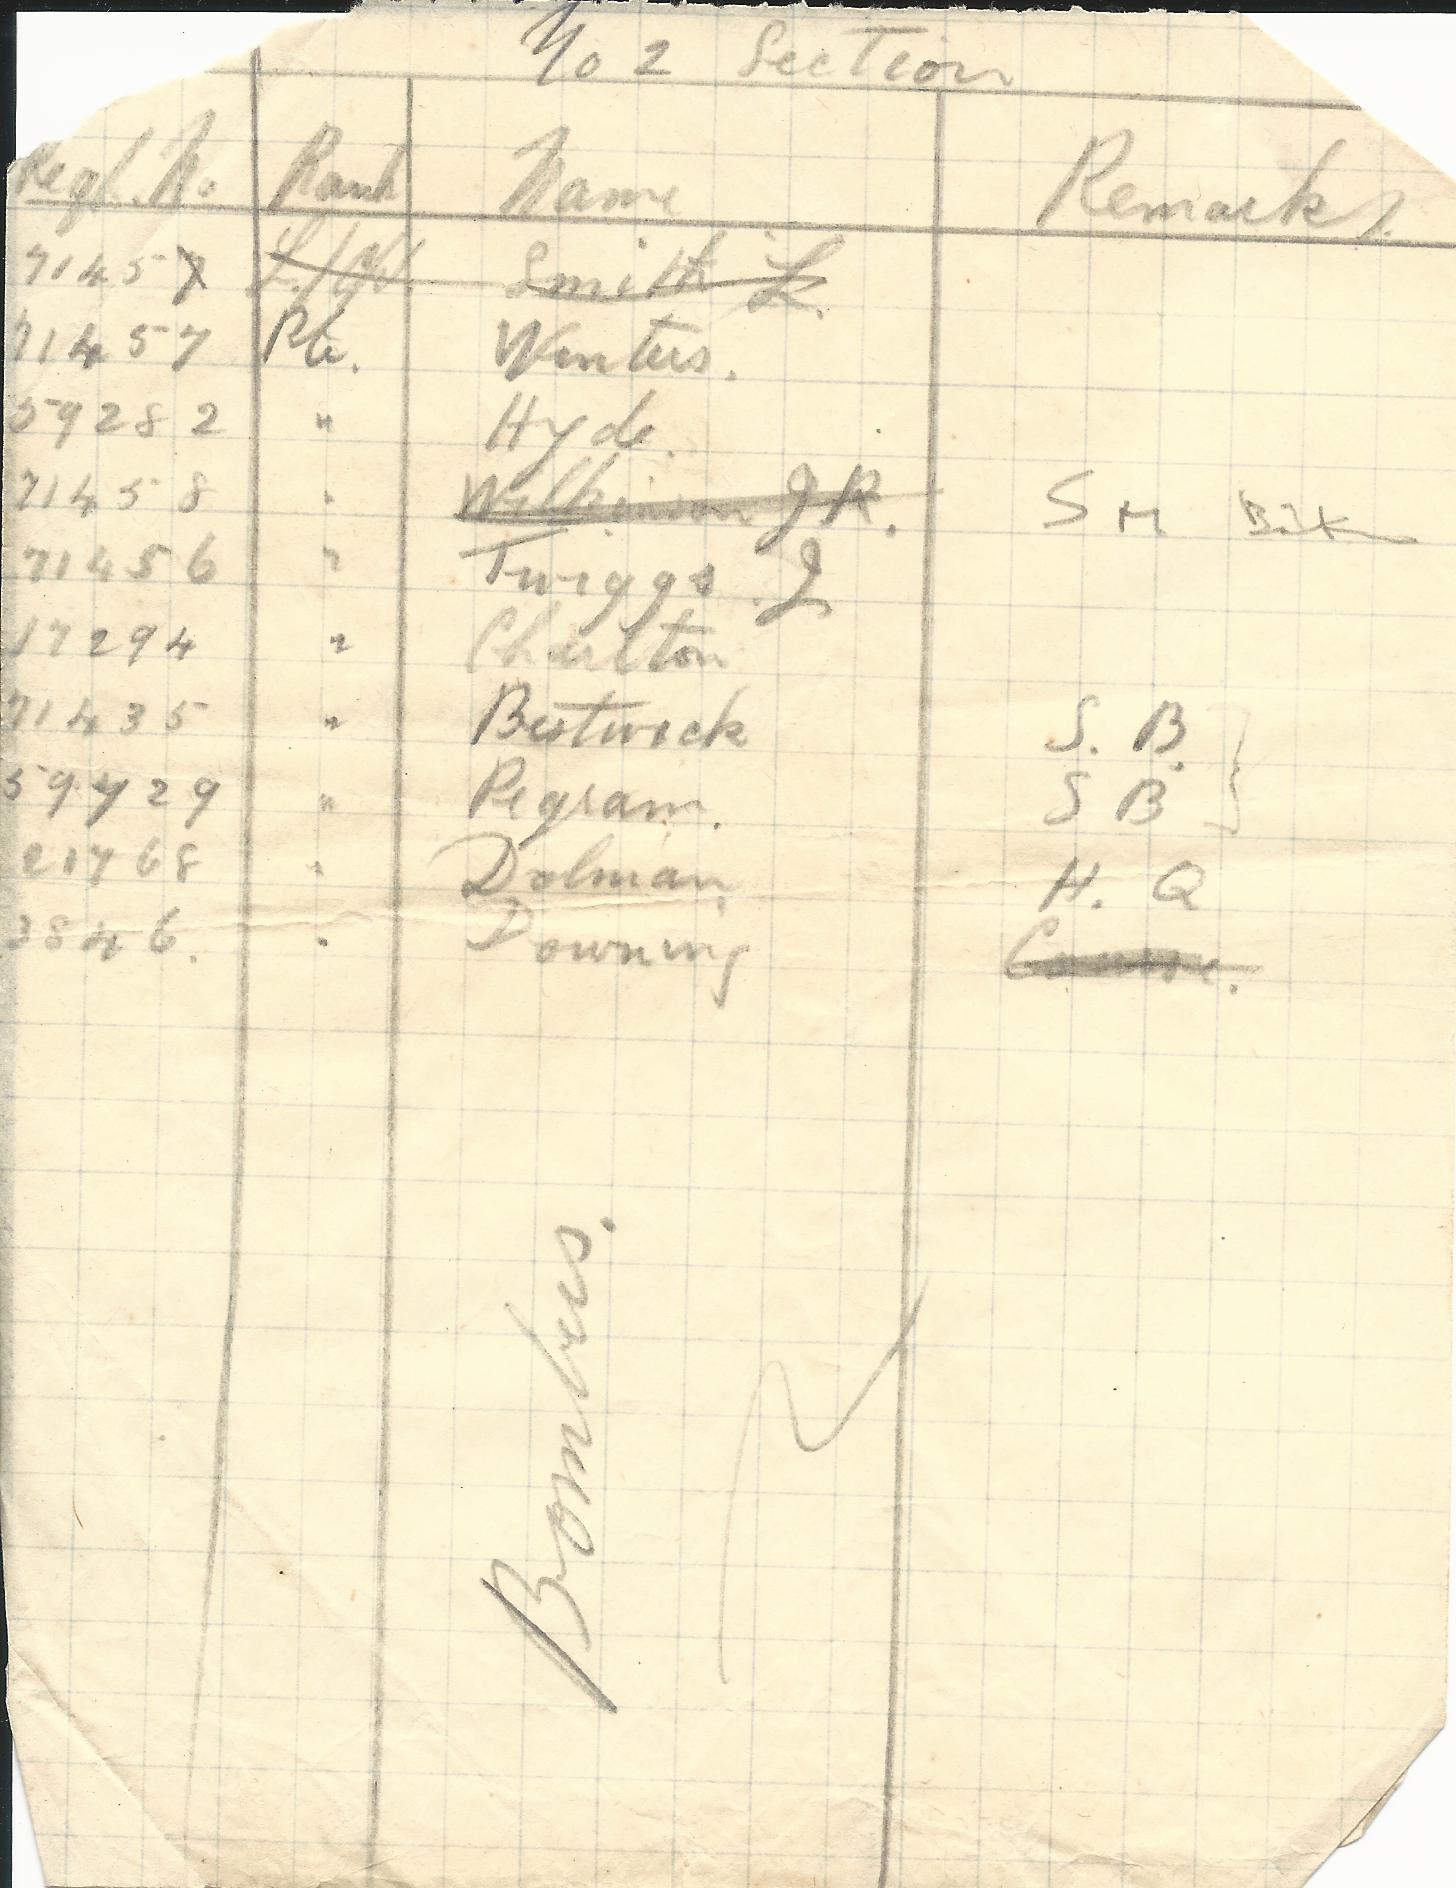 No 2 Section
Regl. No Rank Name Remarks.
71457 Smith L.
71457 Pte. Winters.
59282 " Hyde.
71458 " Wilkinson J R. S M
71456 " Twiggs J
17294 " Charlton
71435 " Bestwick S. B.
59729 " Pegram. S B
21768 " Dolman H. Q
3846. " Downing Course.
Bombers.